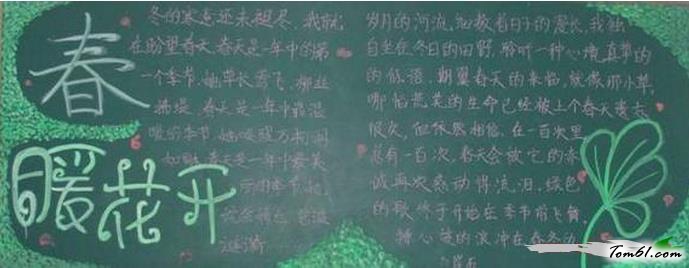 春
暖花开
冬的寒意还未褪尽,我就
在盼望春天。春天是一年中的第
一个季节,她草长莺飞,柳丝
拂堤。春天是一年中最温
暖的季节,她唤醒万物
春天是一年中最美
的季节
岁月的河流,日子的漫长,我独
自坐在冬日的田野,聆听一种心境真挚的
的低语,期望春天的来临,就像那小草,
哪怕荒芜的生命已经被上个春天遗忘
很久,但依然相信,在一百次里
总有一百次,春天会被它的赤
诚再次感动得流泪。绿色
的歌终于开始在季节前飞翔,
在春冬
Tom61.com